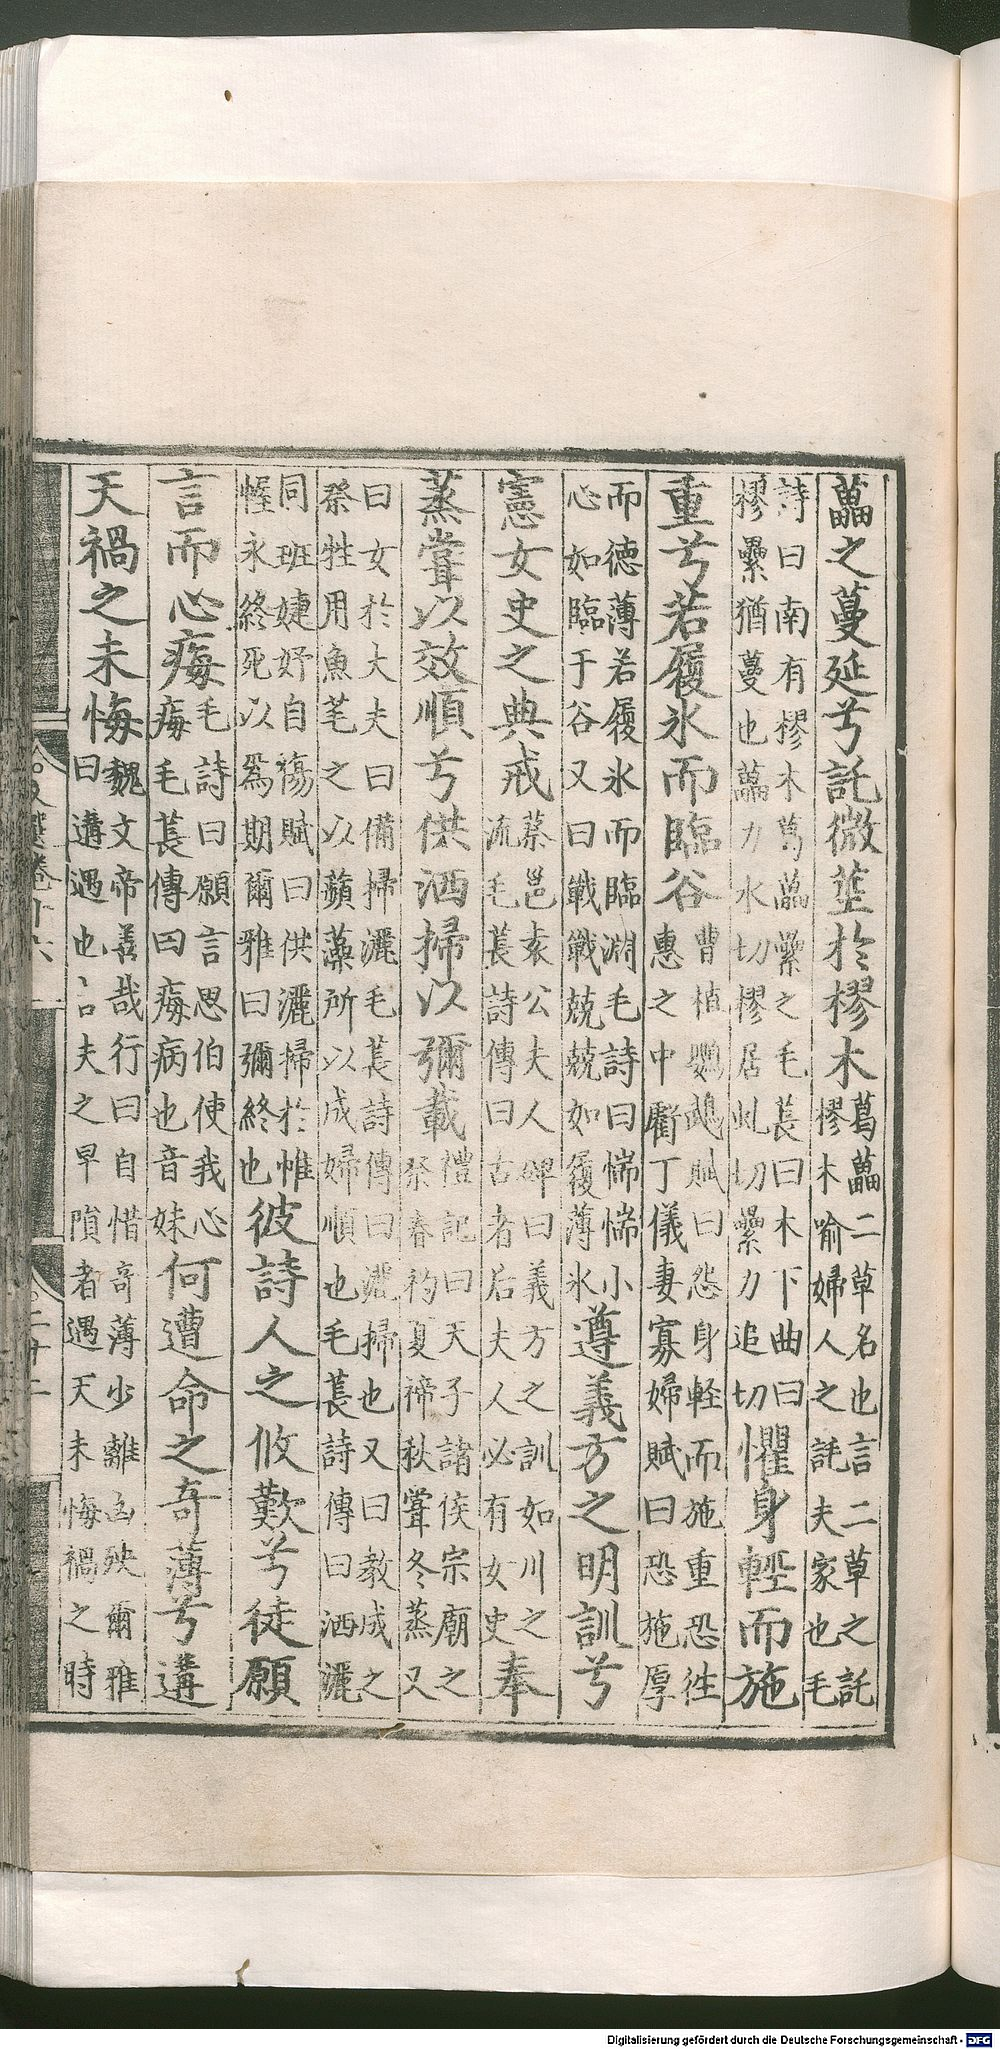 藟之蔓延兮託微莖於樛木葛藟二草名也言二草之託
樛木喻婦人之託夫家也毛
詩曰南有樛木葛藟纍之毛萇曰木下曲曰
樛纍猶蔓也藟力水切樛居虬切纍力追切懼身輕而施
重兮若履氷而臨谷曹植鸚鵡賦曰怨身軽而施重恐徃
惠之中虧丁儀妻寡婦賦曰恐施厚
而德薄若履氷而臨淵毛詩曰惴惴小
心如臨于谷又曰戰戰兢兢如履薄氷遵義方之明訓兮
憲女史之典戒蔡邕袁公夫人碑曰義方之訓如川之
流毛萇詩傳曰古者后夫人必有女史奉
蒸甞以效順兮供洒掃以彌載禮記曰天子諸侯宗廟之
祭春礿夏禘秋甞冬蒸又
曰女於大夫曰備掃灑毛萇詩傳曰灑掃也又曰教成之
祭牲用魚芼之以蘋藻所以成婦順也毛萇詩傳曰洒灑
同班婕妤自傷賦曰供灑掃於帷
幄永終死以爲期爾雅曰彌終也彼詩人之攸歎兮徒願
言而心痗毛詩曰願言思伯使我心
痗毛萇傳曰痗病也音妹何遭命之奇薄兮遘
天禍之未悔魏文帝善哉行曰自惜奇薄少離凶殃爾雅
曰遘遇也言夫之早隕者遇天未悔禍之時
文選卷十六
二十二
Digitalisierung gefördert durch die Deutsche Forschungsgemeinschaft - DFG